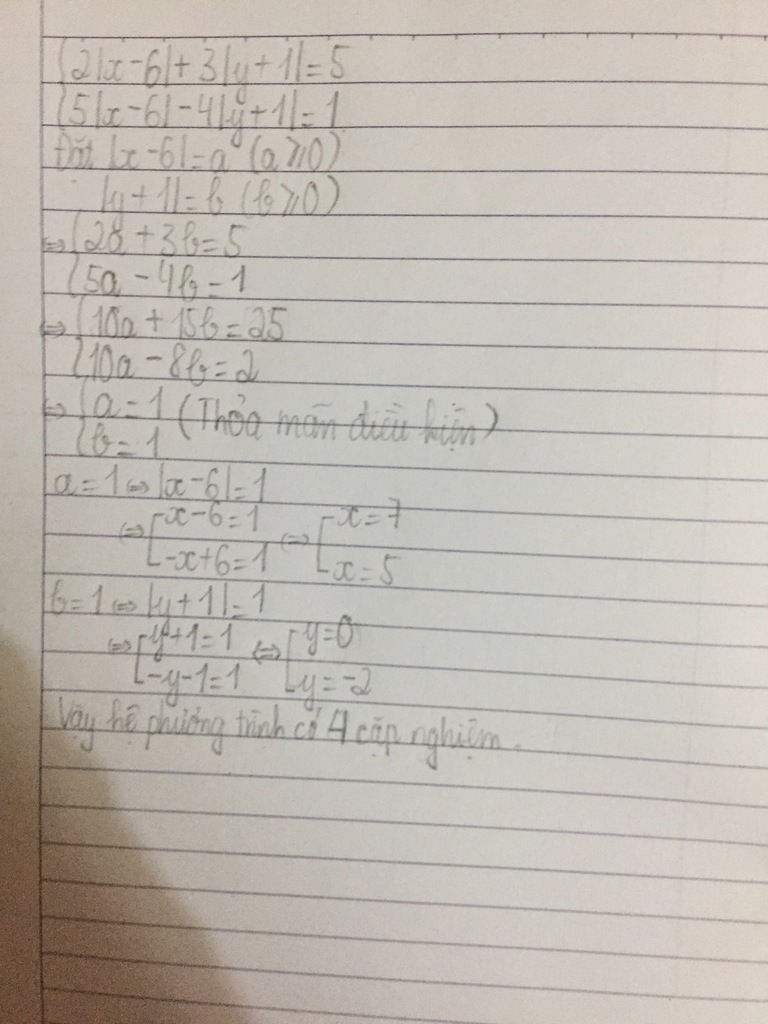 {2|x-6|+3|y+1|=5
{5|x-6|-4|y+1|=1
Đặt |x-6|=a (a⩾0)
|y+1|=b (b⩾0)
⇔{2a+3b=5
{5a-4b=1
⇔{10a+15b=25
{10a-8b=2
⇔{a=1 (Thỏa mãn điều kiện)
{b=1
a=1⇔|x-6|=1
⇔[x-6=1 ⇔[x=7
[-x+6=1 [x=5
b=1⇔|y+1|=1
⇔[y+1=1 ⇔[y=0
[-y-1=1 [y=-2
Vậy hệ phương trình có 4 cặp nghiệm.